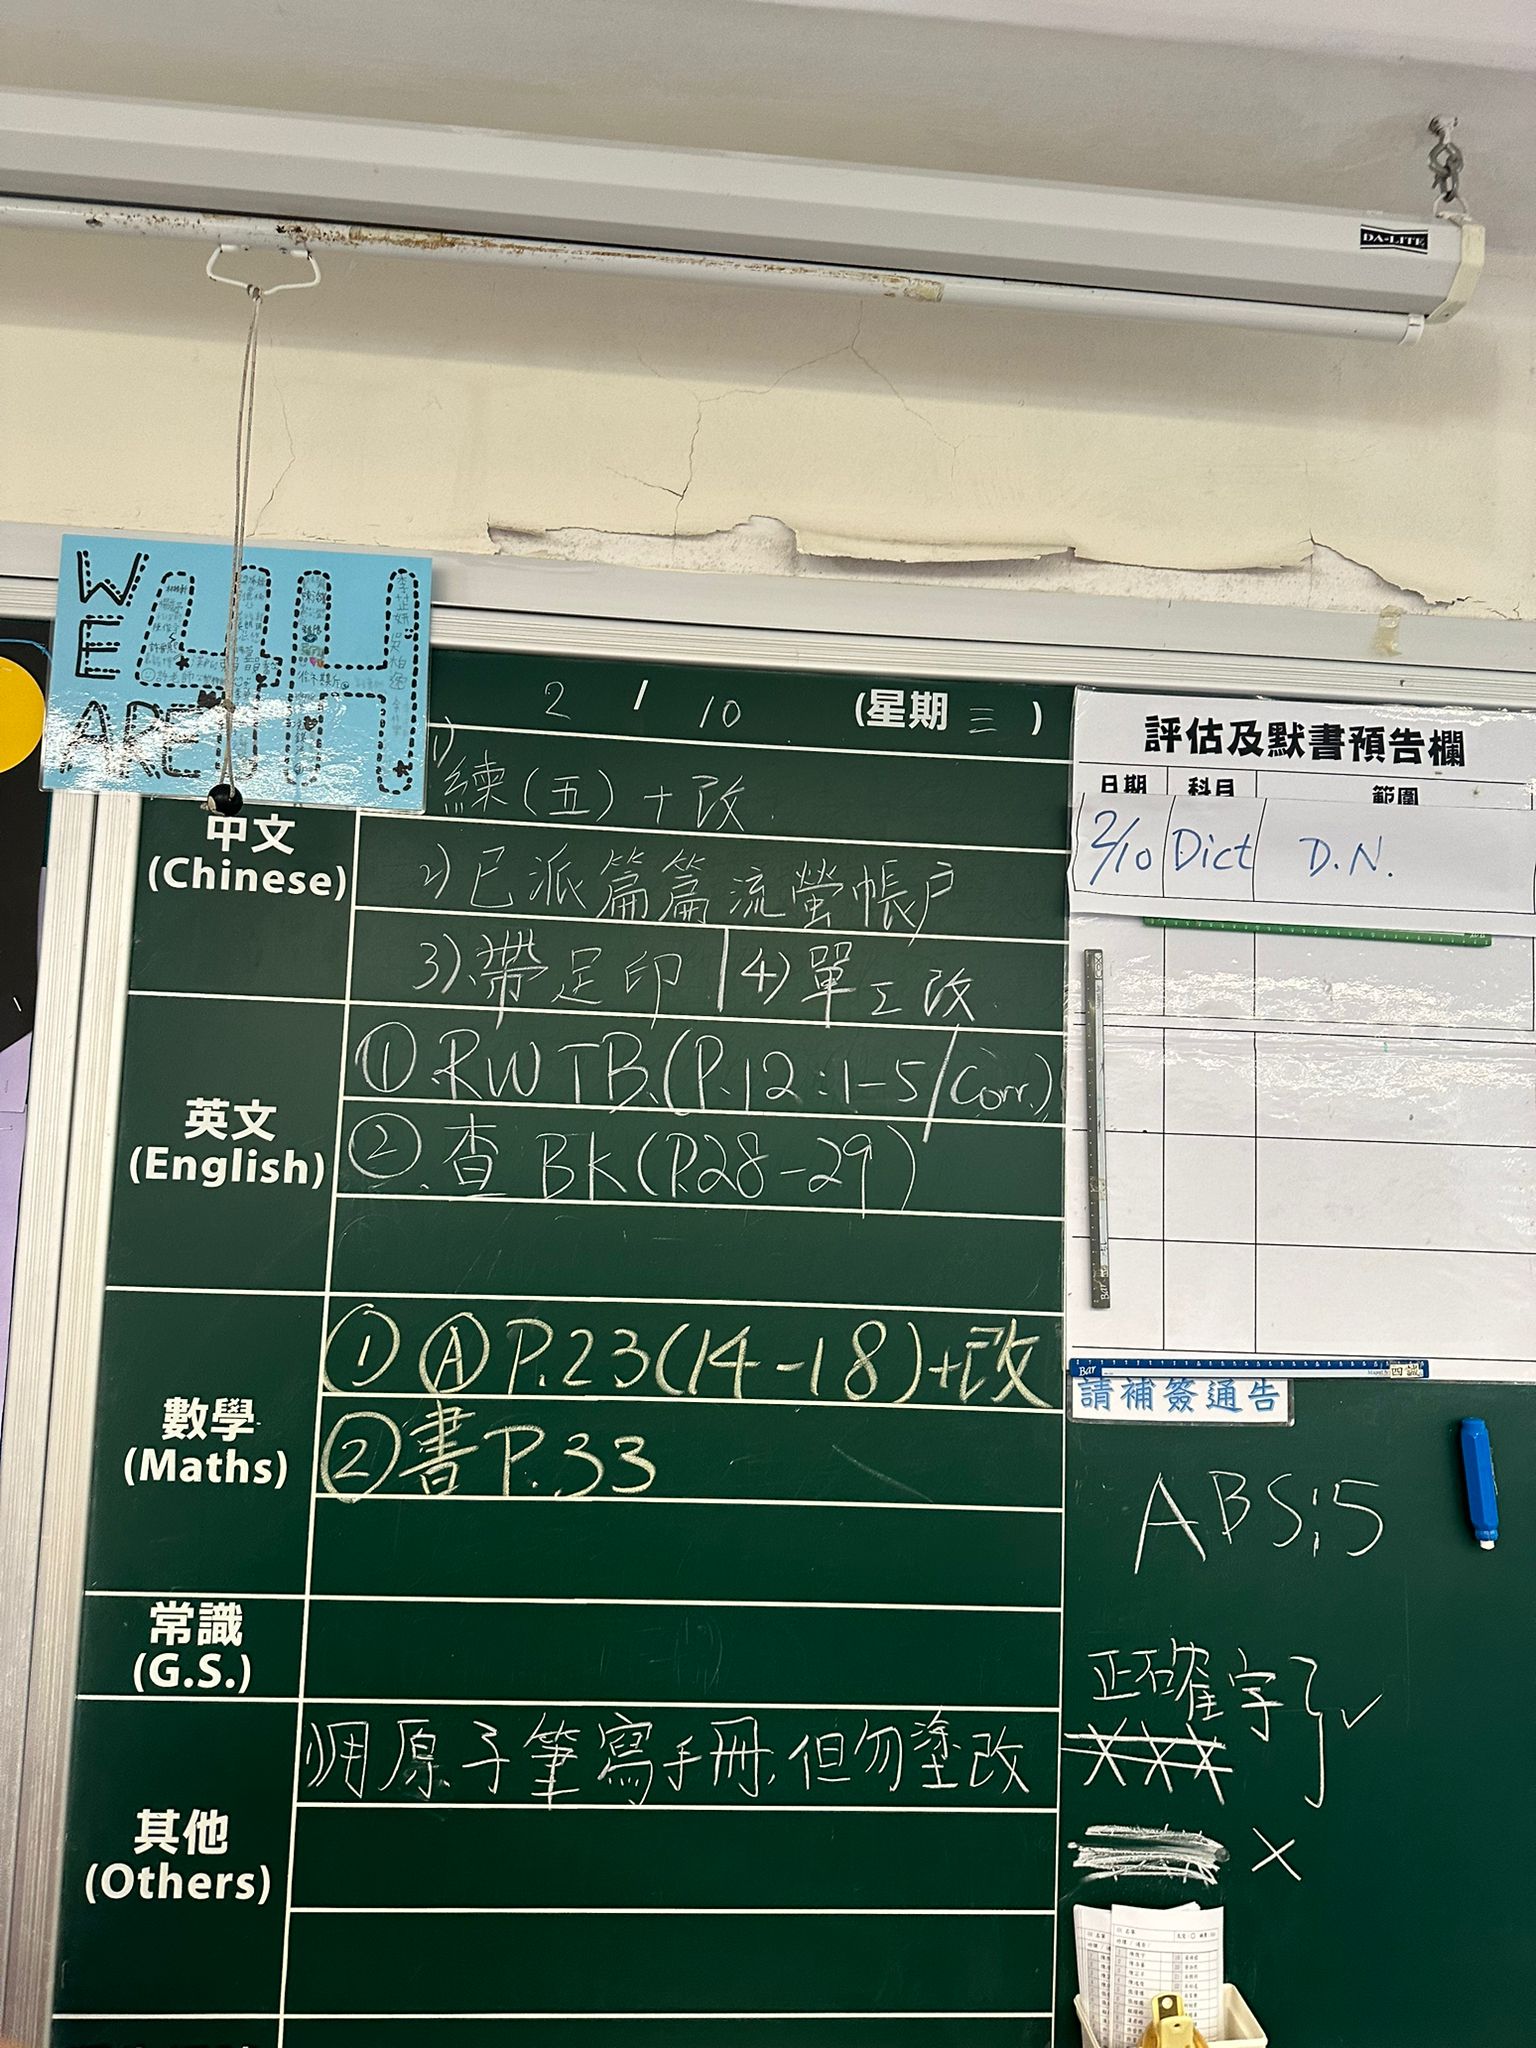 DA-LITE
WE ARE 4H
2 / 10 (星期 三 )
中文
(Chinese)
1) 練(五)+改
2) 已派篇篇流螢帳戶
3) 帶足印 | 4) 單工改
英文
(English)
① RWTB (P.12:1-5/Corr.)
② 查 BK (P.28-29)
數學
(Maths)
① Ⓐ P.23(14-18)+改
② 書 P.33
常識
(G.S.)
其他
(Others)
1) 用原子筆寫手冊,但勿塗改
評估及默書預告欄
日期 科目 範圍
2/10 Dict D.N.
請補簽通告
ABS:5
正確字 } ✓
×